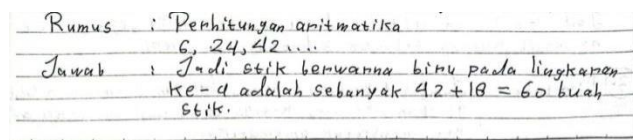 Rumus : Perhitungan aritmatika
6, 24, 42 ....
Jawab : Jadi stik berwarna biru pada lingkaran
ke-4 adalah sebanyak 42 + 18 = 60 buah
stik.